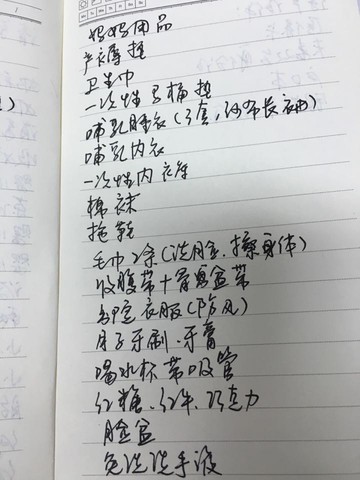 妈妈用品
产衣褥垫
卫生巾
一次性马桶垫
哺乳睡衣(3套,纱布长衣裤)
哺乳内衣
一次性内衣裤
棉袜
拖鞋
毛巾2条(洗脸.擦身体)
收腹带+骨盆带
出院衣服(防风)
月子牙刷.牙膏
喝水杯带吸管
红糖.红牛.巧克力
脸盆
免洗洗手液